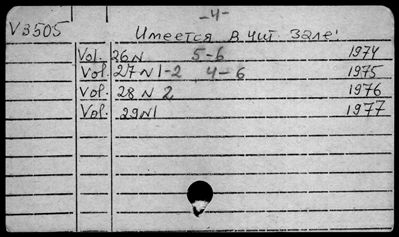 -4-
V3505 Имеется в чит. зале!
Vol. 26 N 5-6 1974
Vol. 27 N 1-2 4-6 1975
Vol. 28 N 2 1976
Vol. 29 N1 1977